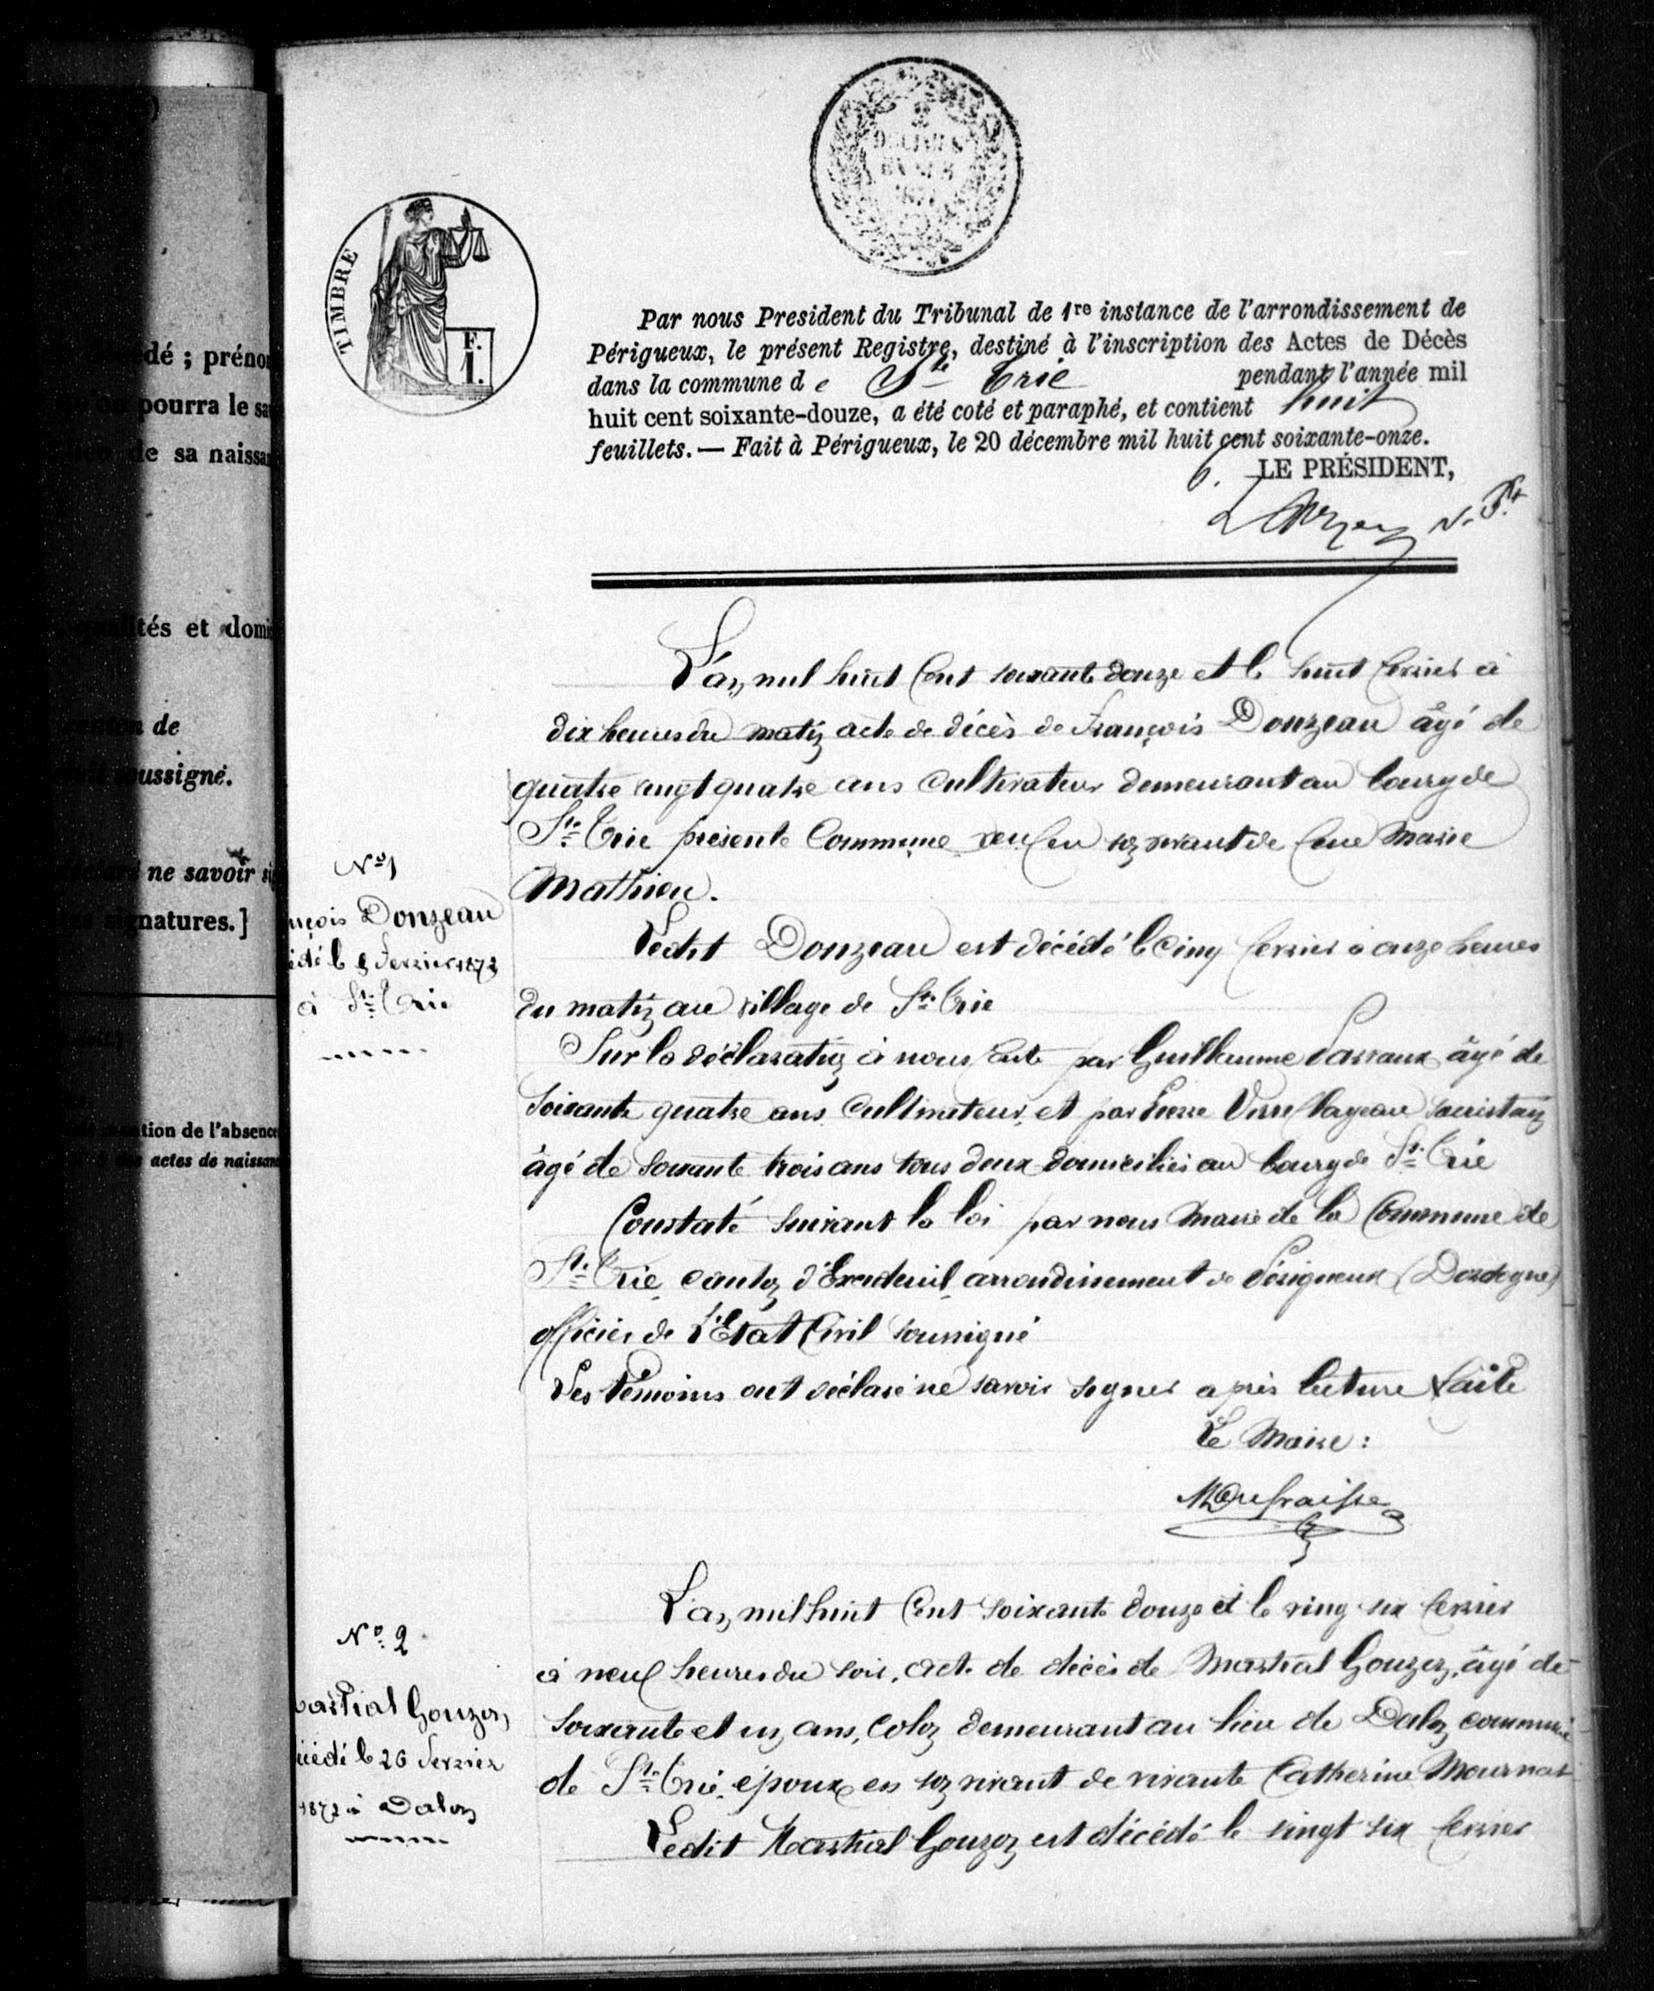 2
DÉCIMES
EN SUS
1871
TIMBRE
F.
1.
Par nous President du Tribunal de 1re instance de l'arrondissement de
Périgueux, le présent Registre, destiné à l'inscription des Actes de Décès
dans la commune de Ste Trie pendant l'année mil
huit cent soixante-douze, a été coté et paraphé, et contient huit
feuillets. — Fait à Périgueux, le 20 décembre mil huit cent soixante-onze.
LE PRÉSIDENT,
dé ; prénom
pourra le sa
de sa naissan
tés et domi
de
soussigné.
ne savoir si
signatures.]
tion de l'absence
actes de naissan
L'an mil huit Cent soixante douze et le huit février à
dix heures du matin acte de décès de François Donzeau âgé de
quatre vingt quatre ans Cultivateur demeurant au bourg de
Ste Trie présente Commune veuf en son vivant de feue Marie
Mathieu.
Nº 1
nçois Donzeau
édé le 5 Février 1872
à Ste Trie
Ledit Donzeau est décédé le Cinq février à onze heures
du matin au village de Ste Trie
Sur la déclaration à nous faite par Guillaume âgé de
soixante quatre ans Cultivateur et par Pierre sacristain
âgé de soixante trois ans tous deux domiciliés au bourg de Ste Trie
Constaté suivant la loi par nous Maire de la Commune de
Ste Trie canton d'Excideuil arrondissement de Périgueux (Dordogne)
officier de l'Etat Civil soussigné
Les Témoins ont déclaré ne savoir signer après lecture faite
Le Maire :
MDufraisse
Nº 2
artial Gouzon
écédé le 26 Février
1872 à Dalon
L'an mil huit Cent soixante douze et le vingt six février
à neuf heures du soir, acte de décès de Martial Gouzon, âgé de
soixante et un ans, Colon demeurant au lieu de Dalon commune
de Ste Trie, époux en son vivant de vivante Catherine Mournat
Ledit Martial Gouzon est décédé le vingt six février